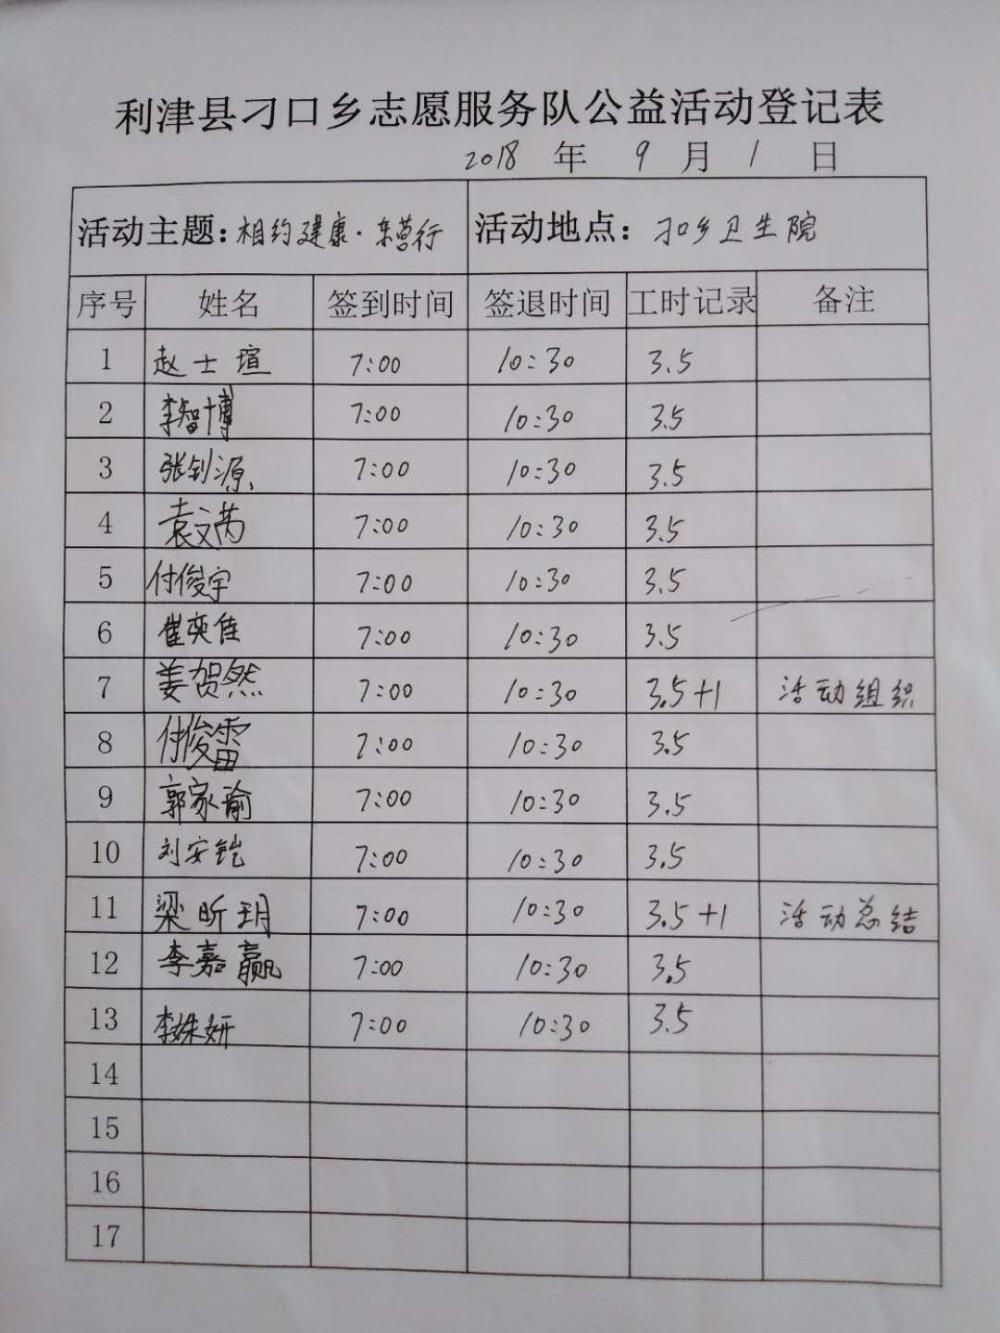 利津县刁口乡志愿服务队公益活动登记表
2018 年 9 月 1 日
活动主题：相约建康·东营行 活动地点：刁口乡卫生院
序号 姓名 签到时间 签退时间 工时记录 备注
1 赵士瑄 7:00 10:30 3.5
2 李智博 7:00 10:30 3.5
3 张钊源 7:00 10:30 3.5
4 袁文芮 7:00 10:30 3.5
5 付俊宇 7:00 10:30 3.5
6 崔奕佳 7:00 10:30 3.5
7 姜贺然 7:00 10:30 3.5+1 活动组织
8 付俊雷 7:00 10:30 3.5
9 郭家瑜 7:00 10:30 3.5
10 刘安铠 7:00 10:30 3.5
11 梁昕玥 7:00 10:30 3.5+1 活动总结
12 李嘉赢 7:00 10:30 3.5
13 李姝妍 7:00 10:30 3.5
14
15
16
17